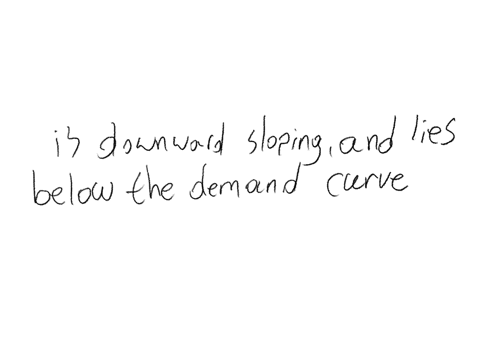 is downward sloping, and lies
below the demand curve